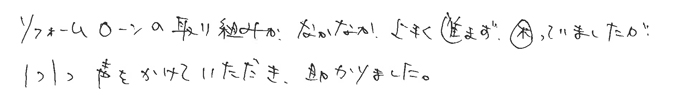 リフォームローンの取り組みが、なかなか、上手く進まず、困っていましたが
1つ1つ声をかけていただき、助かりました。